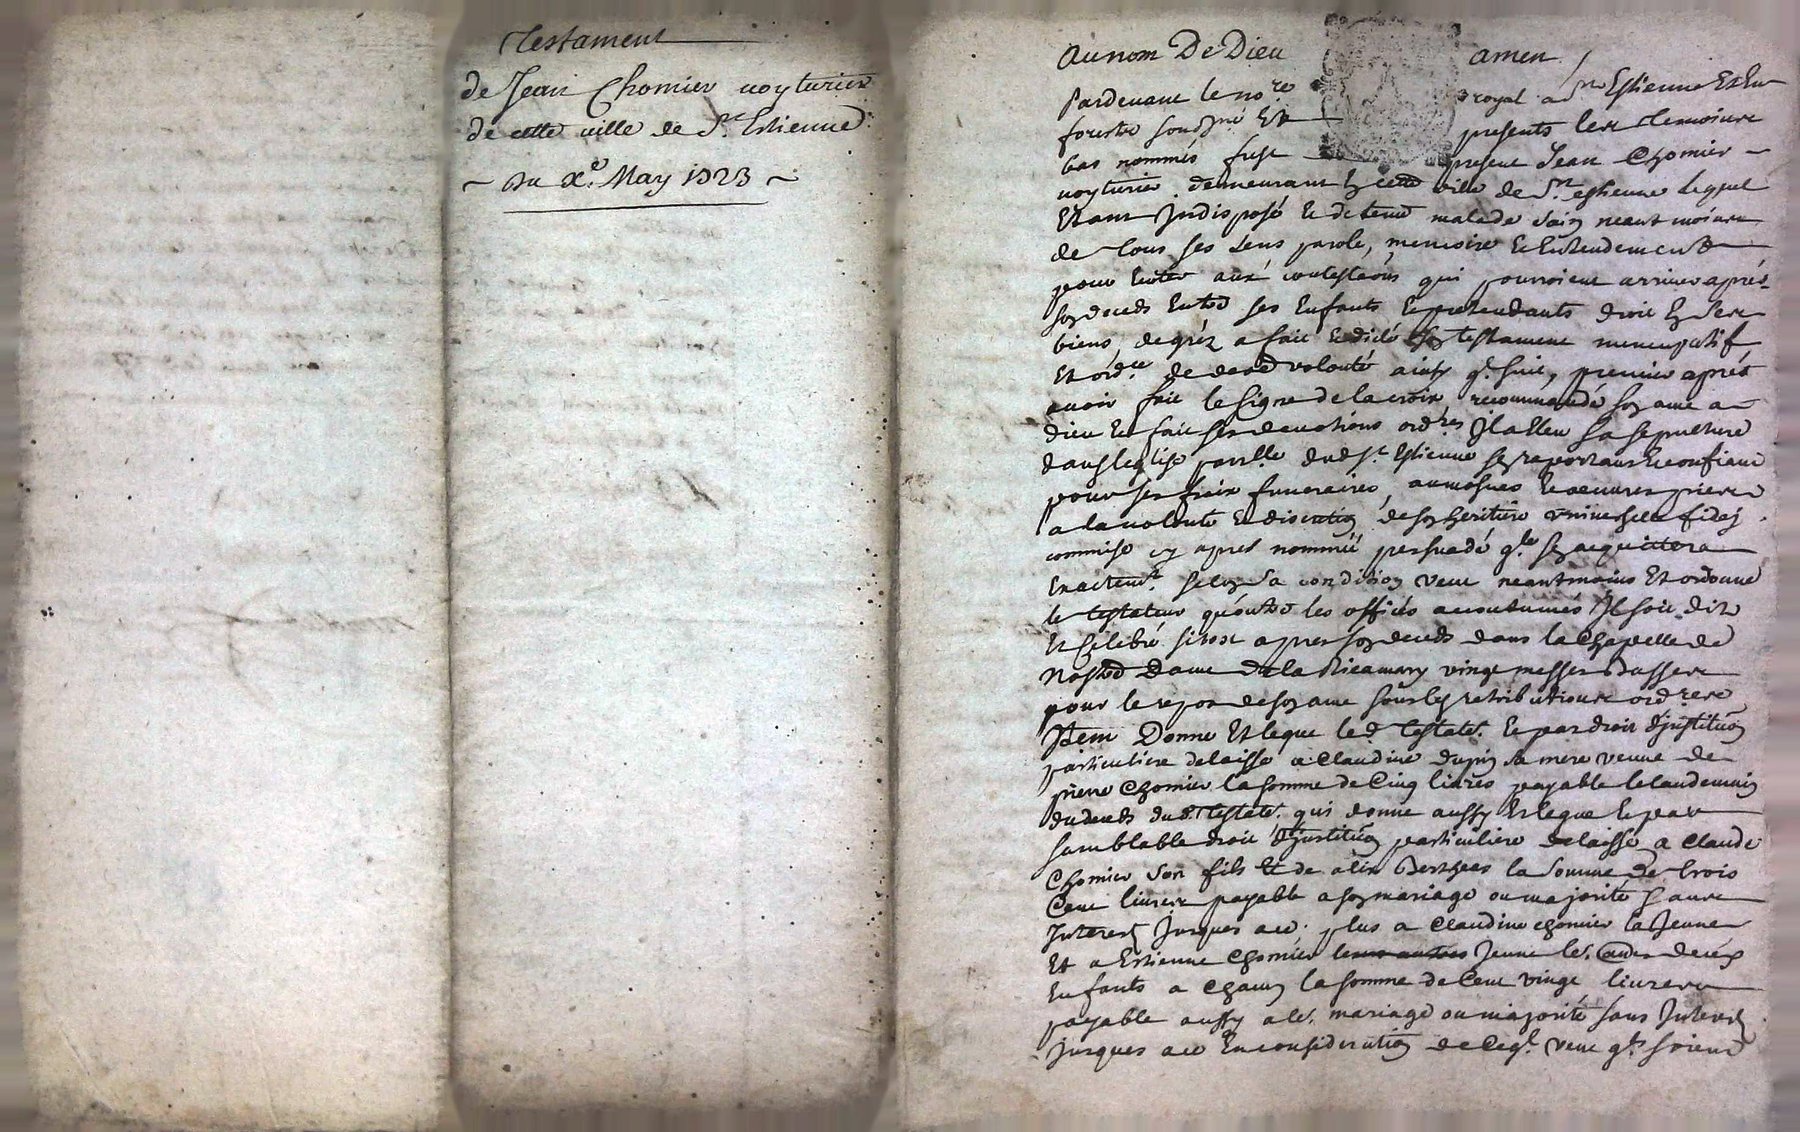 Testament
de Jean Chomier voyturier
de cette ville de St. Estienne
du xe. May 1723
Au nom De Dieu amen
Pardevant le nore royal a Estienne
forestz soussigné Et presents les temoins
bas nommés fust present Jean Chomier
voyturier demeurant en cette ville de St estienne lequel
Estant Indisposé et detenu malade sain neantmoins
de tous ses sens parole, memoire et Entendement
pour Eviter aux contestaons qui pourroient arriver aprés
son deceds Entre ses Enfants et pretendants droit en ses
biens de gréz a fait et dicté son testament nuncupatif
Et ordce de dere volonté ainsy q. suit, premier aprés
avoir fait le signe de la croix recommandé son ame a
dieu et fait ses devotions ordres Il a Eleu sa sepulture
dans l'eglise parrlle dud St. Estienne se raportant et confiant
pour ses fraix funeraires, aumosnes et oeuvres pies
a la volonté et discretion de son heritiere universelle fidei
commise cy apres nommée persuadé q.le s'en acquittera
Exactemt. selon sa condition veut neantmoins Et ordonne
le testateur qu'outre les offices accoutumés Il soit dit
Et célébré sitost apres son deceds dans la chapelle de
Nostre Dame de la Ricamary vingt messes basses
pour le repos de son ame sous les retributions ordres
Item Donne Et legue led. testatr. et par droit d'Institución
particuliere delaisse a Claudine dupin sa mere veuve de
pierre Chomier la somme de Cinq livres payable le landemain
du deceds dud. testatr. qui donne aussy Et legue et par
semblable droit d'Institución particuliere delaisse a Claude
Chomier son fils Et de alix la somme de trois
Cent livres payable a son mariage ou majorité sans
Interest Jusques a ce. plus a Claudine chomier la Jeune
Et a Estienne Chomier Jeune
Enfants a chacun la somme de Cent vingt livres
payable aussy a le. mariage ou majorité sans Interest
Jusques a ce En consideration de veut q.ls soient